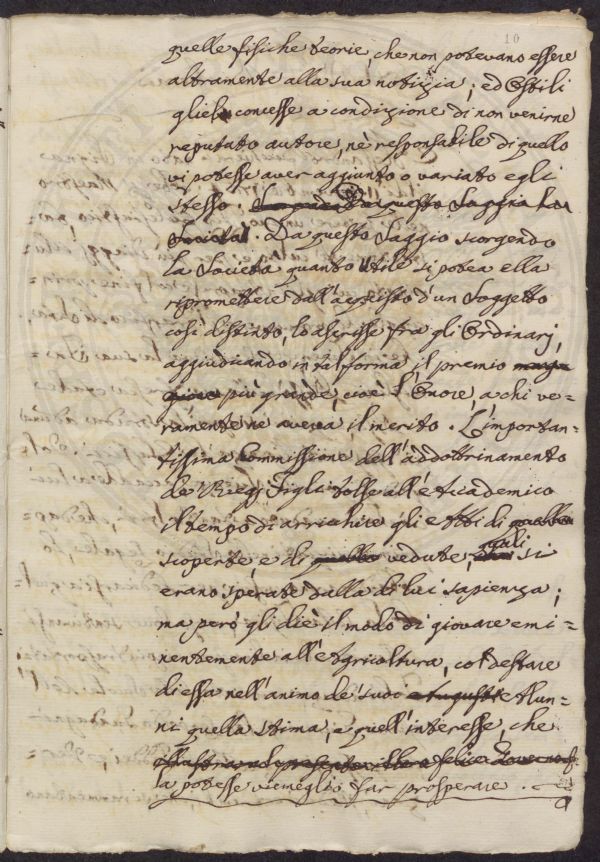 10
quelle fisiche teorie, che non potevano essere
altramente alla sua notizia; ed Ostili
gliele concesse a condizione di non venirne
reputato autore, nè responsabile di quello
vi potesse aver aggiunto o variato egli
stesso. questo Saggio la
Società. Da questo Saggio scorgendo
la Società quanto utile si potea ella
ripromettere dall'acquisto d'un Soggetto
così distinto, lo ascrisse fra gli Ordinarj,
aggiudicando in tal forma il premio
più grande, cioè l'Onore, a chi ve=
ramente ne aveva il merito. L'importan=
tissima Commissione dell'addottrinamento
de' Regj Figli tolse all'Accademico
il tempo di arricchire gli Atti di quelle
scoperte, e di quelle vedute, quali si
erano sperate dalla di lui sapienza;
ma però gli diè il modo di giovare emi=
nentemente all'Agricoltura, col destare
di essa nell'animo de' suoi Augusti Alun=
ni quella stima, e quell'interesse, che
la potesse viemeglio far prosperare.